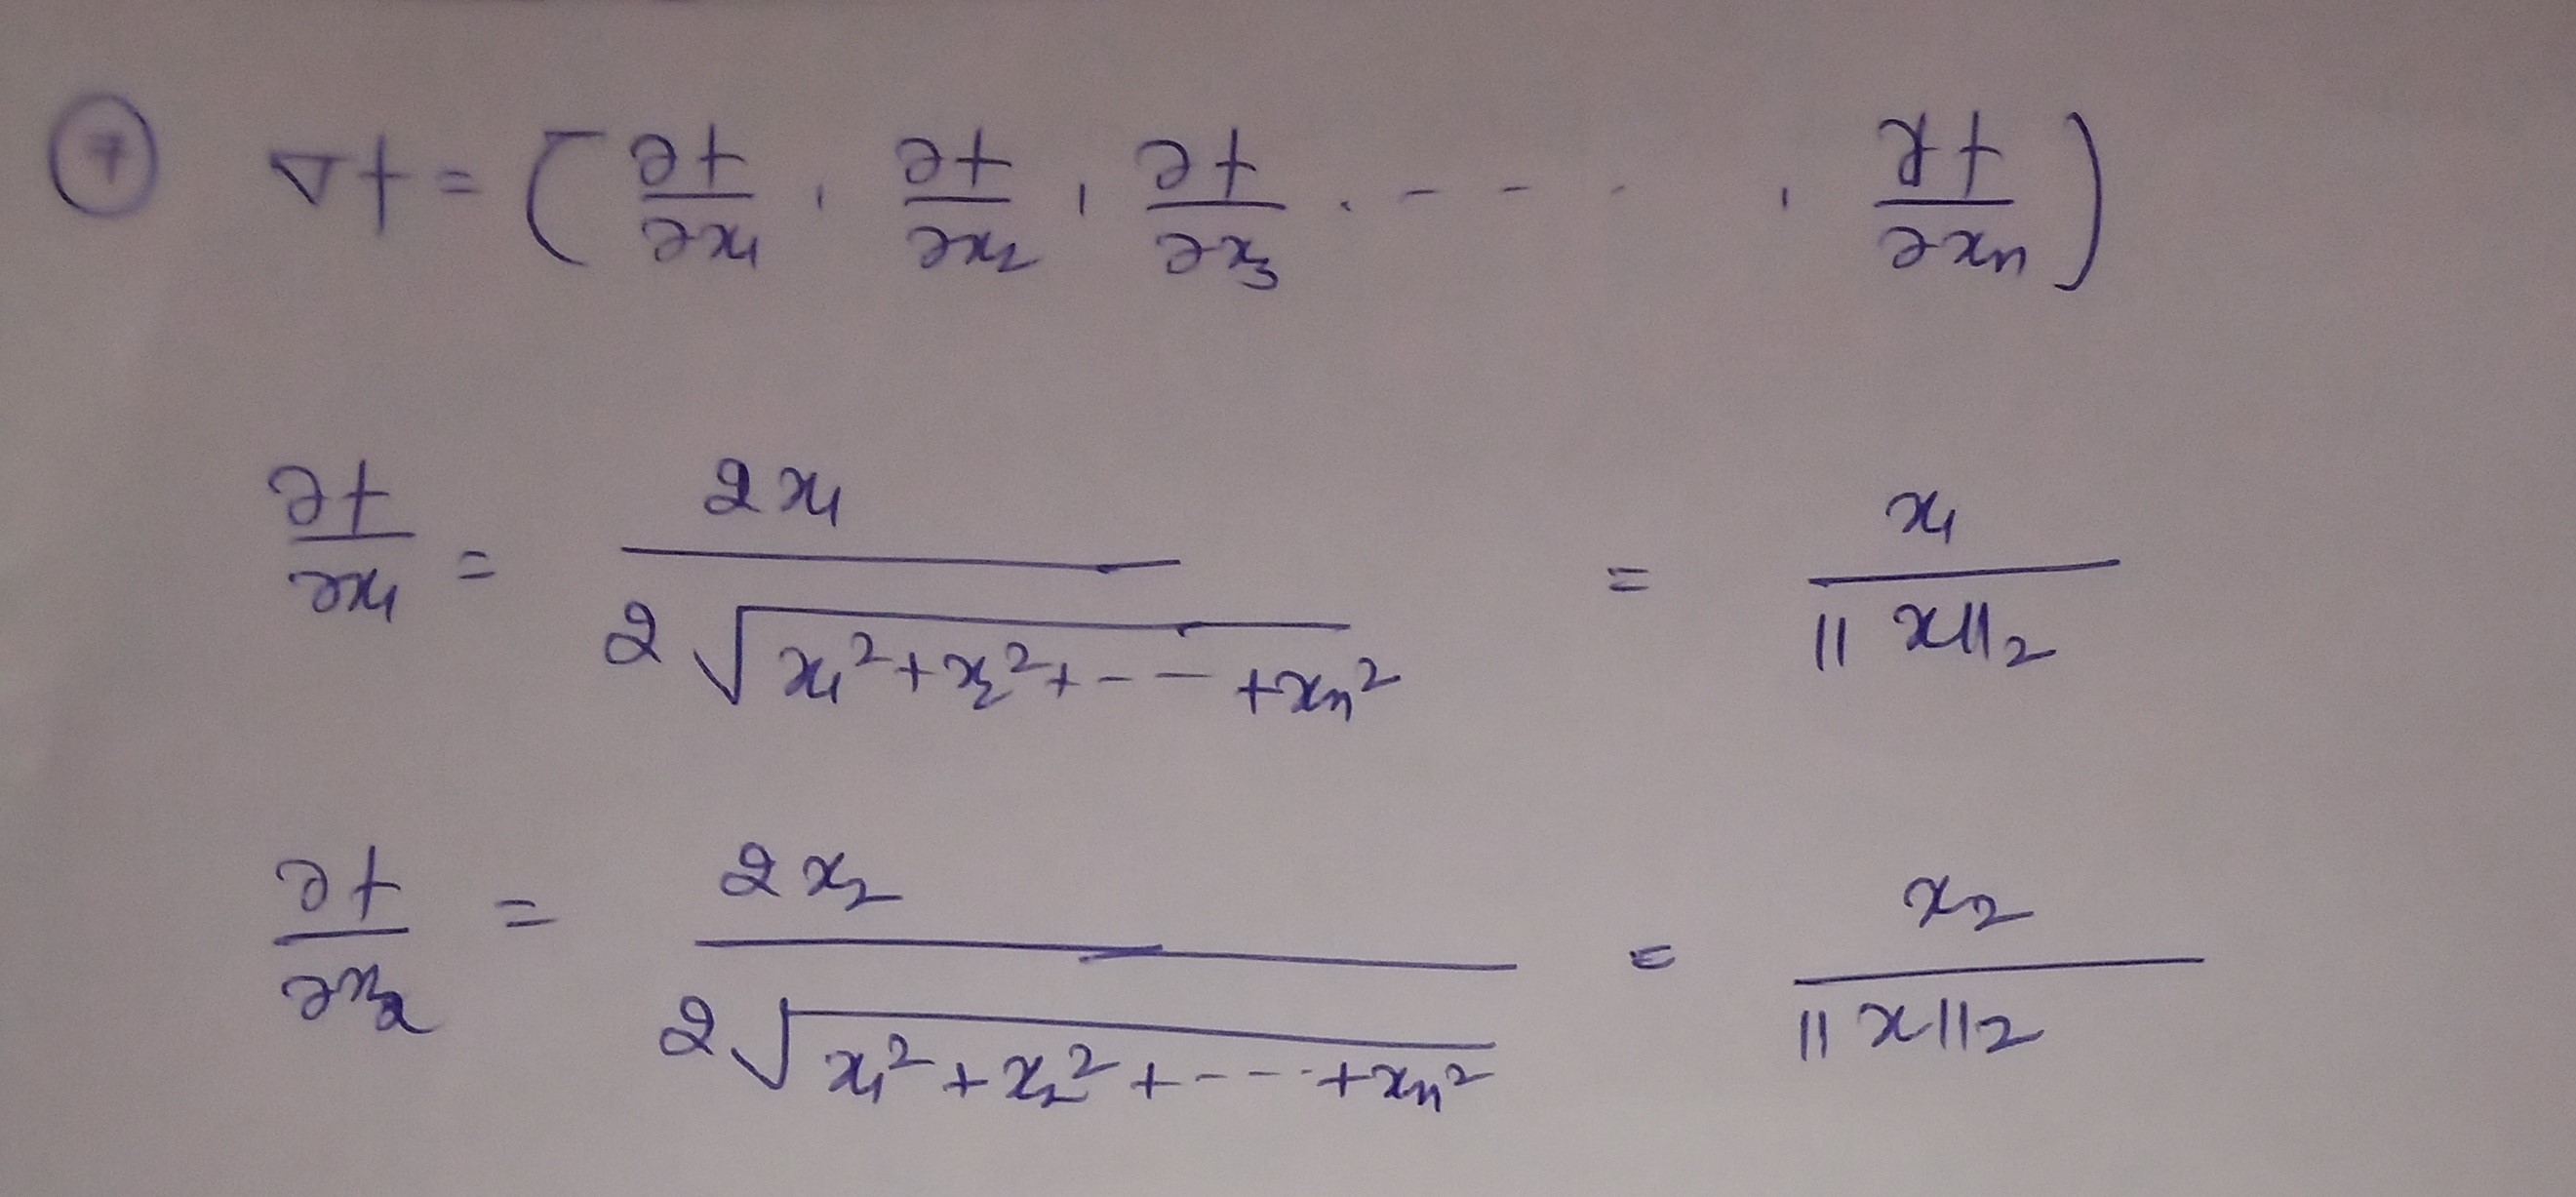 ⑦ ∇f = ( ∂f/∂x₁ , ∂f/∂x₂ , ∂f/∂x₃ . - - - , ∂f/∂xₙ )
∂f/∂x₁ = 2x₁ / 2√(x₁² + x₂² + - - - + xₙ²) = x₁ / ||x||₂
∂f/∂x₂ = 2x₂ / 2√(x₁² + x₂² + - - - + xₙ²) = x₂ / ||x||₂